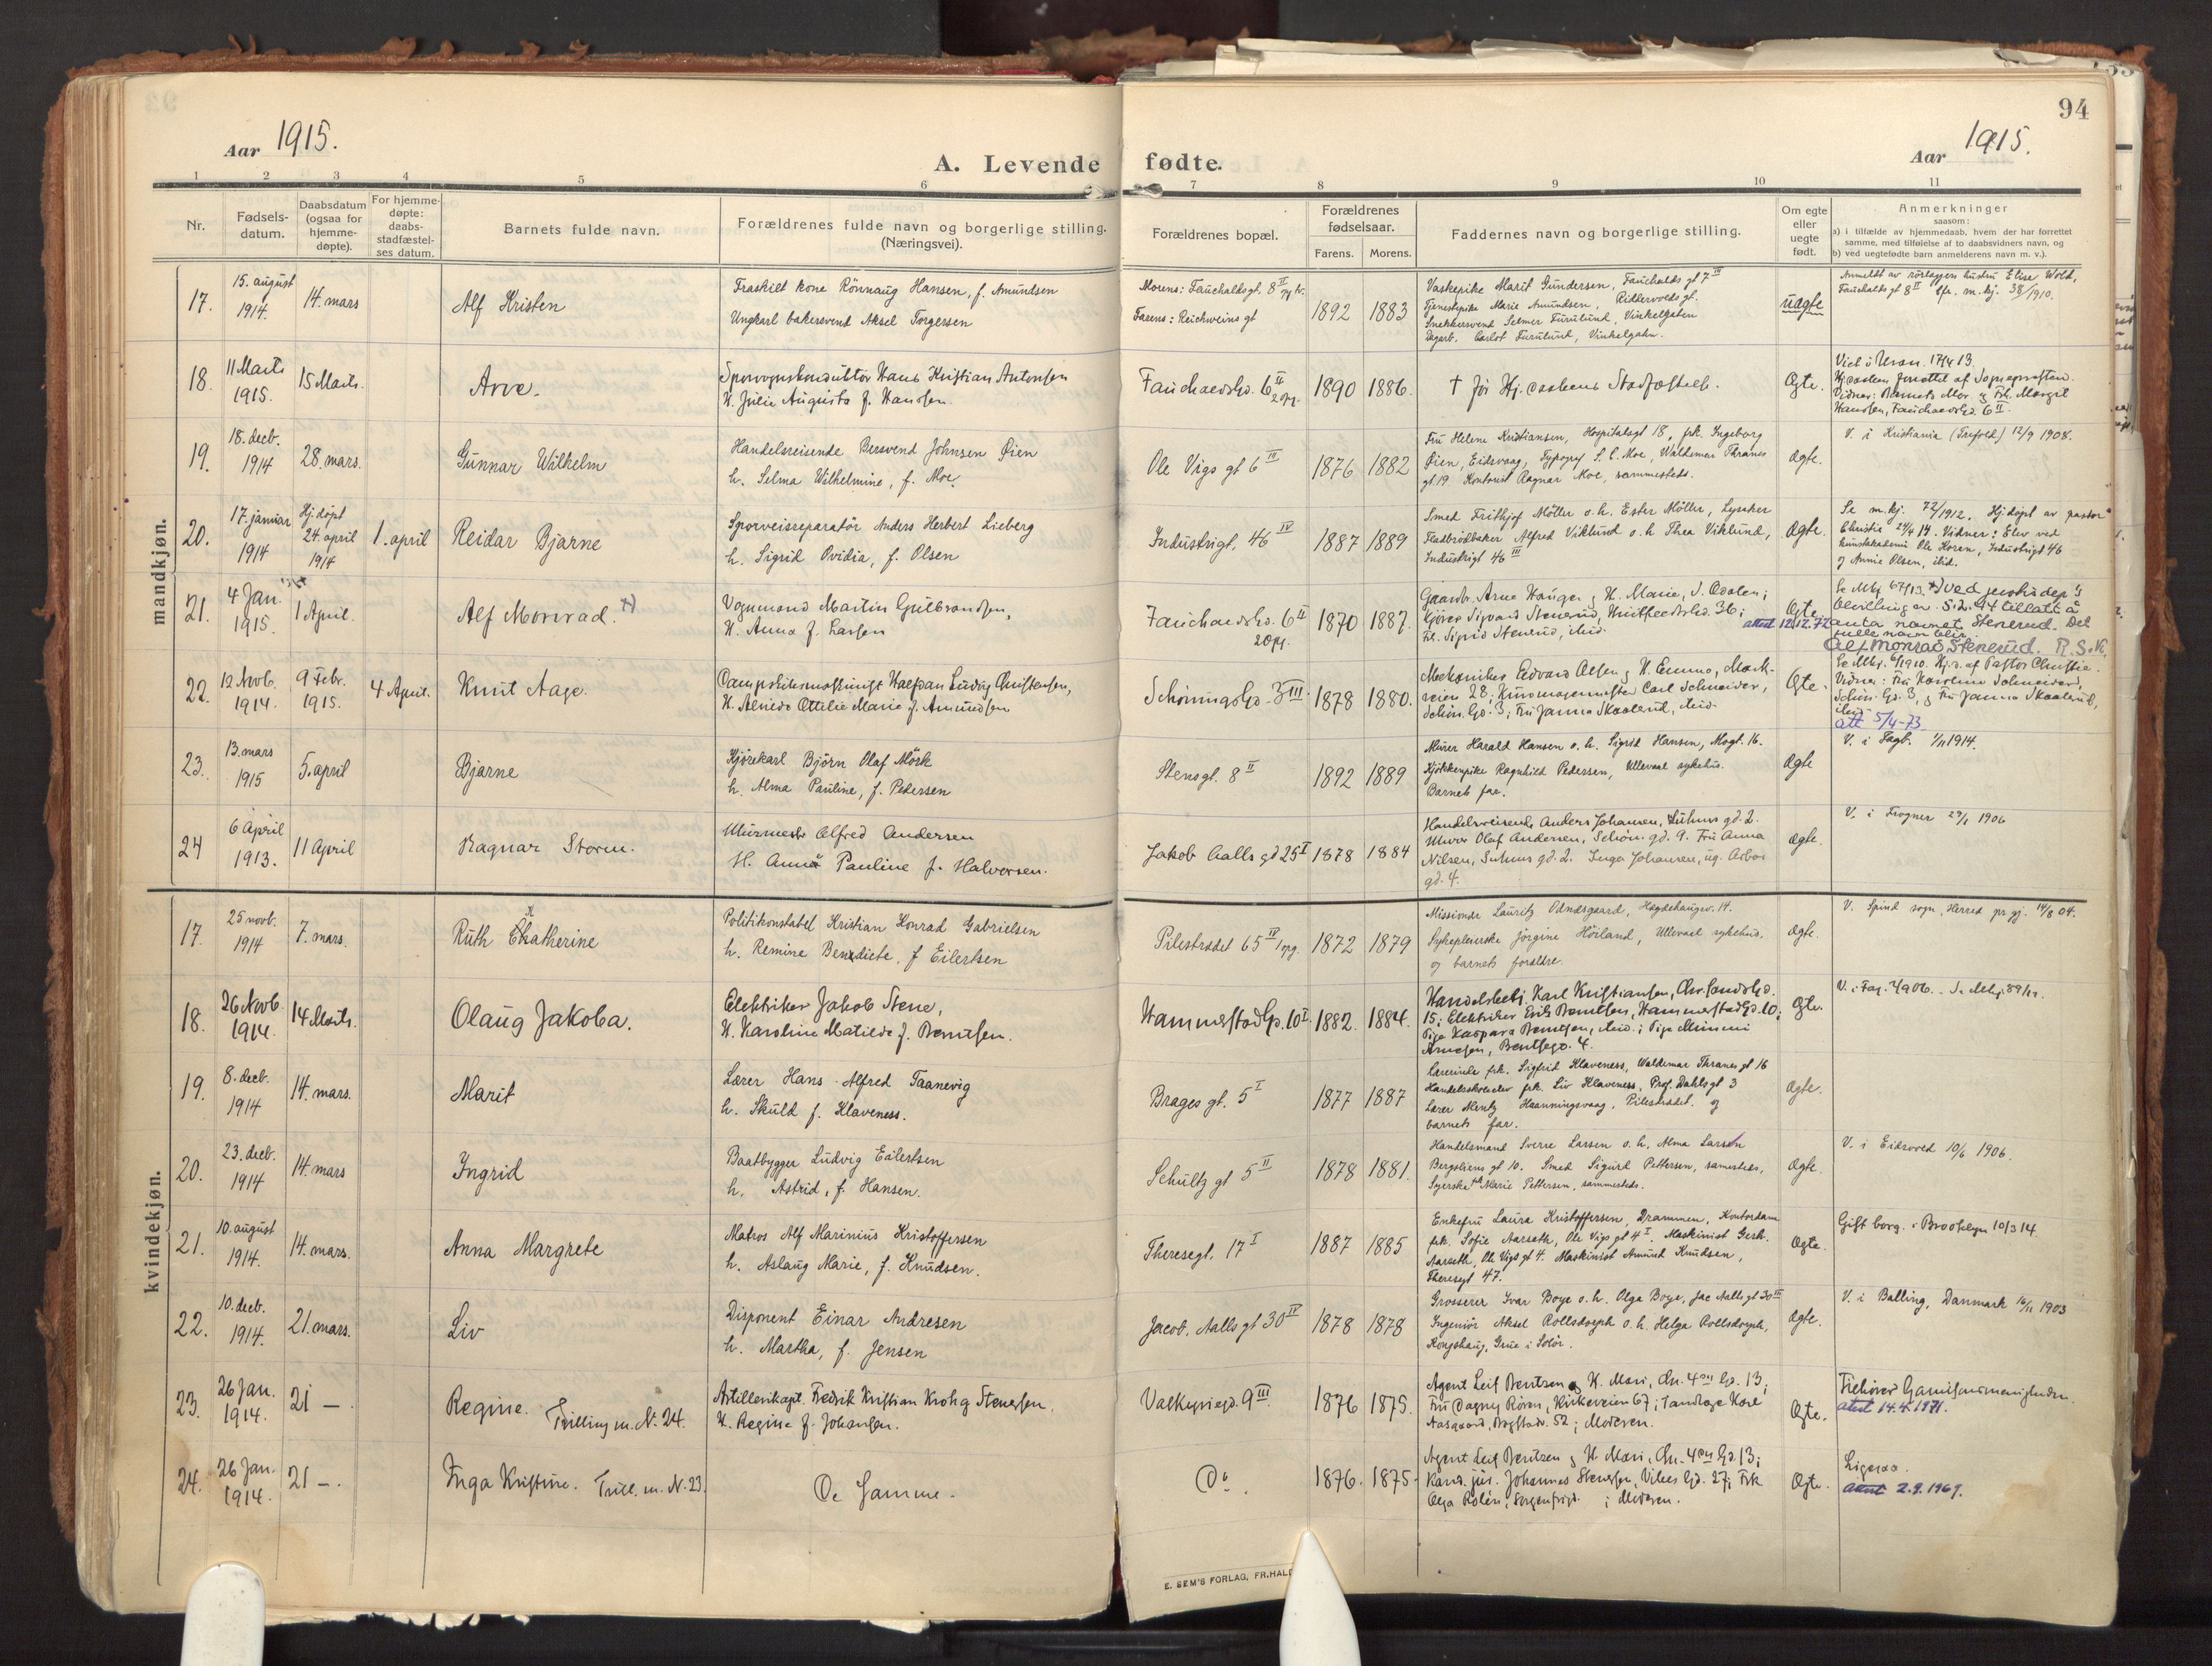 94
Aar 1915.
A. Levende fødte.
Aar 1915.
1 2 3 4 5 6 7 8 9 10 11
Nr.
Fødsels-
datum.
Daabsdatum
(ogsaa for
hjemme-
døpte).
For hjemme-
døpte:
daabs-
stadfæstel-
ses datum.
Barnets fulde navn.
Forældrenes fulde navn og borgerlige stilling.
(Næringsvei).
Forældrenes bopæl.
Forældrenes
fødselsaar.
Farens. Morens.
Faddernes navn og borgerlige stilling.
Om egte
eller
uegte
født.
Anmerkninger
saasom:
a) i tilfælde av hjemmedaab, hvem der har forrettet
samme, med tilføielse af to daabsvidners navn, og
b) ved uegtefødte barn anmelderens navn m. v.).
mandkjøn.
17.
15. august
1914.
14. mars
Alf Kristen
Fraskilt kone Rönnaug Hansen, f. Amundsen
Ungkarl bakersvend Aksel Torgersen
Morens: Fauchaldsgt. 8 II
Farens: Reichweins gt
1892 1883
Vaskepike Marit Gundersen, Fauchalds gt 7 III
Tjenestepike Marie Amundsen, Riddervolds gt.
Snekkersvend Selmer Furulund, Vinkelgaten
Dagarb. Carlot Furulund, Vinkelgatn.
uægte
Anmeldt av rörlæggers hustru Elise Wold,
Fauchalds gt 8 II m. kj. 38/1910.
18.
11 Marts
1915.
15 Marts.
Arve.
Sporvognskonduktör Hans Kristian Antonsen
H. Julie Augusta f. Hansen.
Fauchaldsgd. 6 II
2 opg.
1890 1886.
† før Hj. daabens Stadfæstelse.
Ægte.
Viet i Uran. 17/4 13.
Hj. daaben forrettet af Sogneprästen.
Vidner: Barnets Mor og Frk. Margit
Hansen, Fauchaldsgd. 6 II.
19.
18. decb.
1914
28. mars.
Gunnar Wilhelm
Handelsreisende Bersvend Johnsen Öien
h. Selma Wilhelmine, f. Moe.
Ole Vigs gt 6 IV
1876 1882
Fru Helene Kristiansen, Hospitalsgt 18, frk. Ingeborg
Öien, Eidsvaag, Typograf S. C. Moe, Waldemar Thranes
gt. 19. Kontorist Ragnar Moe, sammesteds.
ægte.
V. i Kristiania (Trefold.) 12/9 1908.
20.
17. januar
1914
Hj. döpt
24. april
1914
1. april
Reidar Bjarne
Sporveisreparatör Anders Herbert Lieberg
h. Sigrid Ovidia, f. Olsen
Industrigt. 46 IV
1887 1889
Smed Frithjof Möller o. h. Ester Möller, Lysaker
Fladbrödbaker Alfred Viklund o. h Thea Viklund,
Industrigt 46 III
ægte.
Se m. kj. 72/1912. Hj. döpt av pastor
Christie 24/4 14. Vidner: Elev ved
kunstakademi Ole Koren, Industrigt 46
og Annie Olsen, ibid.
21.
4 Jan.
1915.
1 April.
Alf Monrad. x)
Vognmand Martin Gulbrandsen,
H. Anna f. Larsen
Fauchaldsgd. 6 II
2 opg.
1870 1887.
Gaardbr. Arne Haugen og H. Marie, S. Odalen;
Kjörer Sigvard Stenerud, Huitfeldtsgd. 36;
Frk. Sigrid Stenerud, ibid.
Ægte.
attest 12.12.72
Se Mkj. 67/13. x) Ved justisdep's
bevilling av 5.2.44 tillatt å
anta navnet Stenerud. Det
fulle navn blir
Alf Monrad Stenerud. R.S.K.
22.
12 Novb.
1914.
9 Febr.
1915.
4 April.
Knut Aage.
Dampskibsmaskinist Halfdan Ludvig Christensen,
H. Alvilde Ottilie Marie f. Amundsen
Schøningsgd. 3 III
1878 1880.
Mekaniker Edvard Olsen og H. Emma, Mark-
veien 28; Kinomaskinmester Carl Schneider,
Schön. Gd. 3; Fru Janna Skaalerud, ibid.
Ægte.
Se Mkj. 6/1910. Hj. d. af Pastor Christie.
Vidner: Fru Karoline Schneider,
Schön. Gd. 3, og Fru Janna Skaalerud,
ibid.
att 5/4-73
23.
13. mars
1915
5. april
Bjarne
Kjörekarl Björn Olaf Mörk
h. Alma Pauline, f. Pedersen
Stensgt. 8 II
1892 1889
Murer Harald Hansen o. h. Sigrid Hansen, Mogt. 16.
Kjökkenpike Ragnhild Pedersen, Ullevaal sykehus.
Barnets far.
ægte
V. i Fagb. 1/11 1914.
24
6 April
1913.
11 April
Ragnar Storm.
Murmestr Alfred Andersen
H. Anna Pauline f. Halvorsen.
Jakob Aalls gd 25 I
1878 1884
Handelsreisende Anders Johansen, Suhms gd. 2.
Murer Olaf Andersen, Schön. gd. 9. Fru Anna
Nilsen, Suhms gd. 2. Inga Johansen, ug. Asbos
gd. 4.
ægte.
V. i Frogner 29/1 1906
kvindekjøn.
17.
25 novb.
1914
7. mars.
Ruth Chatherine
K
Politikonstabel Kristian Konrad Gabrielsen
h. Remine Benedicte, f Eilertsen
Pilestrædet 65 IV 1 opg.
1872 1879
Missionær Lauritz Odnæsgaard, Hægdehaugsv. 14.
Sykepleierske Jörgine Höiland, Ullevaal sykehus.
og barnets forældre.
ægte.
V. Spind sogn, Herred pr. gj. 14/8 04.
18.
26 Novb.
1914.
14 Marts.
Olaug Jakoba.
Elektriker Jakob Stene,
H. Karoline Matilde f. Berntsen.
Hammerstadgd. 10 I
1882. 1884.
Handelsbetj. Karl Kristiansen, Chr. Sandsgd.
15; Elektriker Erik Berntsen, Hammerstadgd. 10;
Pige Kaspara Berntsen, ibid.; Pige Mimmi
Arnesen, Bentsegd. 4.
Ægte.
19.
8. decb.
1914
14. mars.
Marit
Lærer Hans Alfred Taanevig
h. Skuld f. Klaveness.
Brages gt. 5 I
1877 1887
Lærerinde frk. Sigfrid Klaveness, Waldemar Thranes gt 16
Handelsskoleelev frk. Liv Klaveness, Prof. Dahls gt 3
Lærer Mentz Haanningsvaag, Pilestrædet. og
barnets far.
ægte.
20.
23. decb.
1914
14. mars
Ingrid
Baatbygger Ludvig Eilertsen
h. Astrid, f. Hansen.
Schultz gt 5 II
1878 1881.
Handelsmand Sverre Larsen o. h. Alma Larsen
Bergsliens gt 10. Smed Sigurd Pettersen, samesteds,
Syerske Marie Pettersen, sammesteds.
ægte.
V. i Eidsvold 10/6 1906.
21.
10. august
1914.
14. mars.
Anna Margrete
Matros Alf Marinius Kristoffersen
h. Aslaug Marie, f. Knudsen.
Theresegt. 17 I
1887 1885
Enkefru Laura Kristoffersen, Drammen, Kontordame
frk. Sofie Aarseth, Ole Vigs gt 4 I. Maskinist Gerh.
Aarseth, Ole Vigs gt 4. Maskinist Amund Knudsen,
Theresgt 47.
ægte.
Gift borg. i Brooklyn 10/3 14.
22.
10. decb.
1914.
21. mars.
Liv
Disponent Einar Andresen
h. Martha, f. Jensen
Jacob. Aalls gt 30 IV
1878 1878
Grosserer Ivar Boye o. h. Olga Boye, Jac Aalls gt 30 III
Ingeniör Aksel Rollsdorph o. h. Helga Rollsdorph,
Kongshaug, Grue i Solör.
ægte.
V. i Balling, Danmark 16/11 1903
23.
26 Jan.
1914.
21 —.
Regine. Trilling m. No. 24.
Artillerikapt. Fredrik Kristian Krohg Stenersen,
H. Regine f. Johansen.
Valkyriegd. 9 III
1876 1875.
Agent Leif Berntzen og H. Mari, Chr. 4des Gd. 13;
Fru Dagny Rören, Kirkeveien 67; Tandlæge Kåre
Aasgaard, Bogstadv. 52; Moderen.
Ægte.
Tilhører Garnisonsmenigheden.
attest 14.4.1971.
24.
26 Jan.
1914.
21 —.
Inga Kristine. Trill. m. N. 23.
De Samme.
Do.
1876. 1875.
Agent Leif Berntzen og H. Mari, Chr. 4des Gd. 13;
Kand. jur. Johannes Stenersen, Vibes Gd. 27; Frk
Olga Rolén, Sorgenfrigd. ; Moderen.
Ægte.
Ligesaa.
attest 2.9.1969.
E. SEM'S FORLAG, FR.HALD